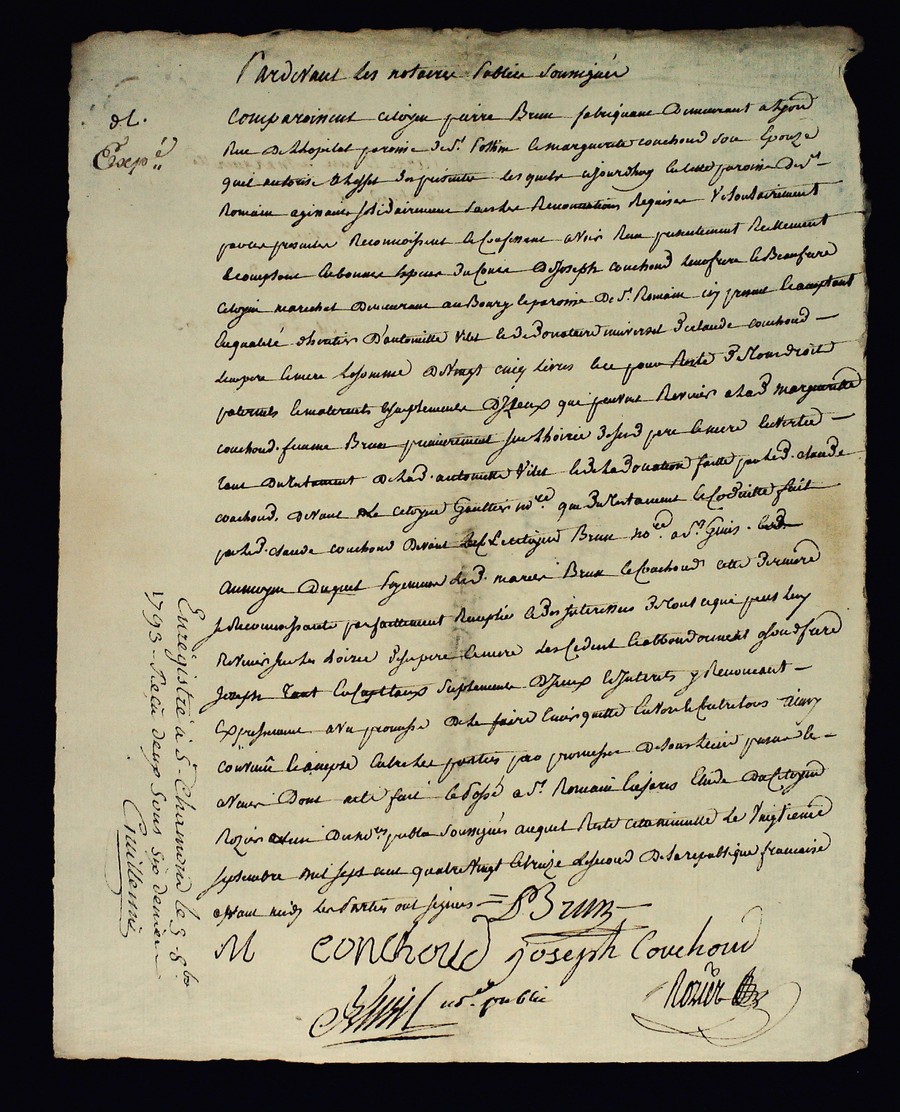 Pardevant les notaires Publics soussignés
dl.
Expé
comparoissent citoyen pierre Brun fabriquant Demeurant a Lyon
Rue De Lhopital paroisse de St. et marguerite couchoud son Epouze
quil autorise a Leffet des presentes lesquels cejourdhuy en cette paroisse De St
Romain agissants solidairement sous les Renonciations Requises Volontairement
par ces presentes Reconnoissent et Confessent avoir Reçu presentement Reellement
et comptant en bonnes especes du Cours De Joseph couchoud leur frere et Beaufrere
citoyen marechal Demeurant au Bourg et paroisse De St. Romain icy present et acceptant
en qualité dheritier D'antoinette Vilet et de Donataire universel De claude couchoud
leur pere et mere La somme De Vingt cinq livres et ce pour Reste De tous droits
paternels et maternels et suplements D'iceux que peuvent Revenir a La d. marguerite
couchoud femme Brun premierement sur L'hoirie De son pere et mere en vertu
tant du testament De la d. antoinette Vilet et de La Donation faitte par le d. claude
couchoud Devant le citoyen Gaultier no.re que du testament et Codicille fait
par le d. claude couchoud Devant Le citoyen Brun no.re a St Genis
au moyen Duquel payement Les d. mariés Brun et Couchoud cette derniere
se Reconnoissante parfaittement Remplie et Des interresses De tout ce qui peut luy
Revenir sur les hoiries De ses pere et mere Les Cedent et abbandonnent a son d. frere
joseph tant en Capitaux suplements D'iceux et interets y Renonceant
Expressement avec promesse De ne faire L'en inquietter en Nor et Cultre tous ainsy
convenu et accepté Entre les parties par promesses De tout tenir peine de
a Venir Dont acte fait et Passé a St. Romain en jarès Etude Du Citoyen
Rozier L'un Des no.res publics soussignés auquel Reste cette minute Le Vingtieme
septembre mil sept cent quatre Vingt et treize Le second De La republique francaise
avant midy Les Parties ont signés = P Brun
M couchoud joseph Couchoud
no.re public
Rozier
Enregistré à St Chamond le 3 8bre
1793 - Recu deux sous six deniers
Guillemin